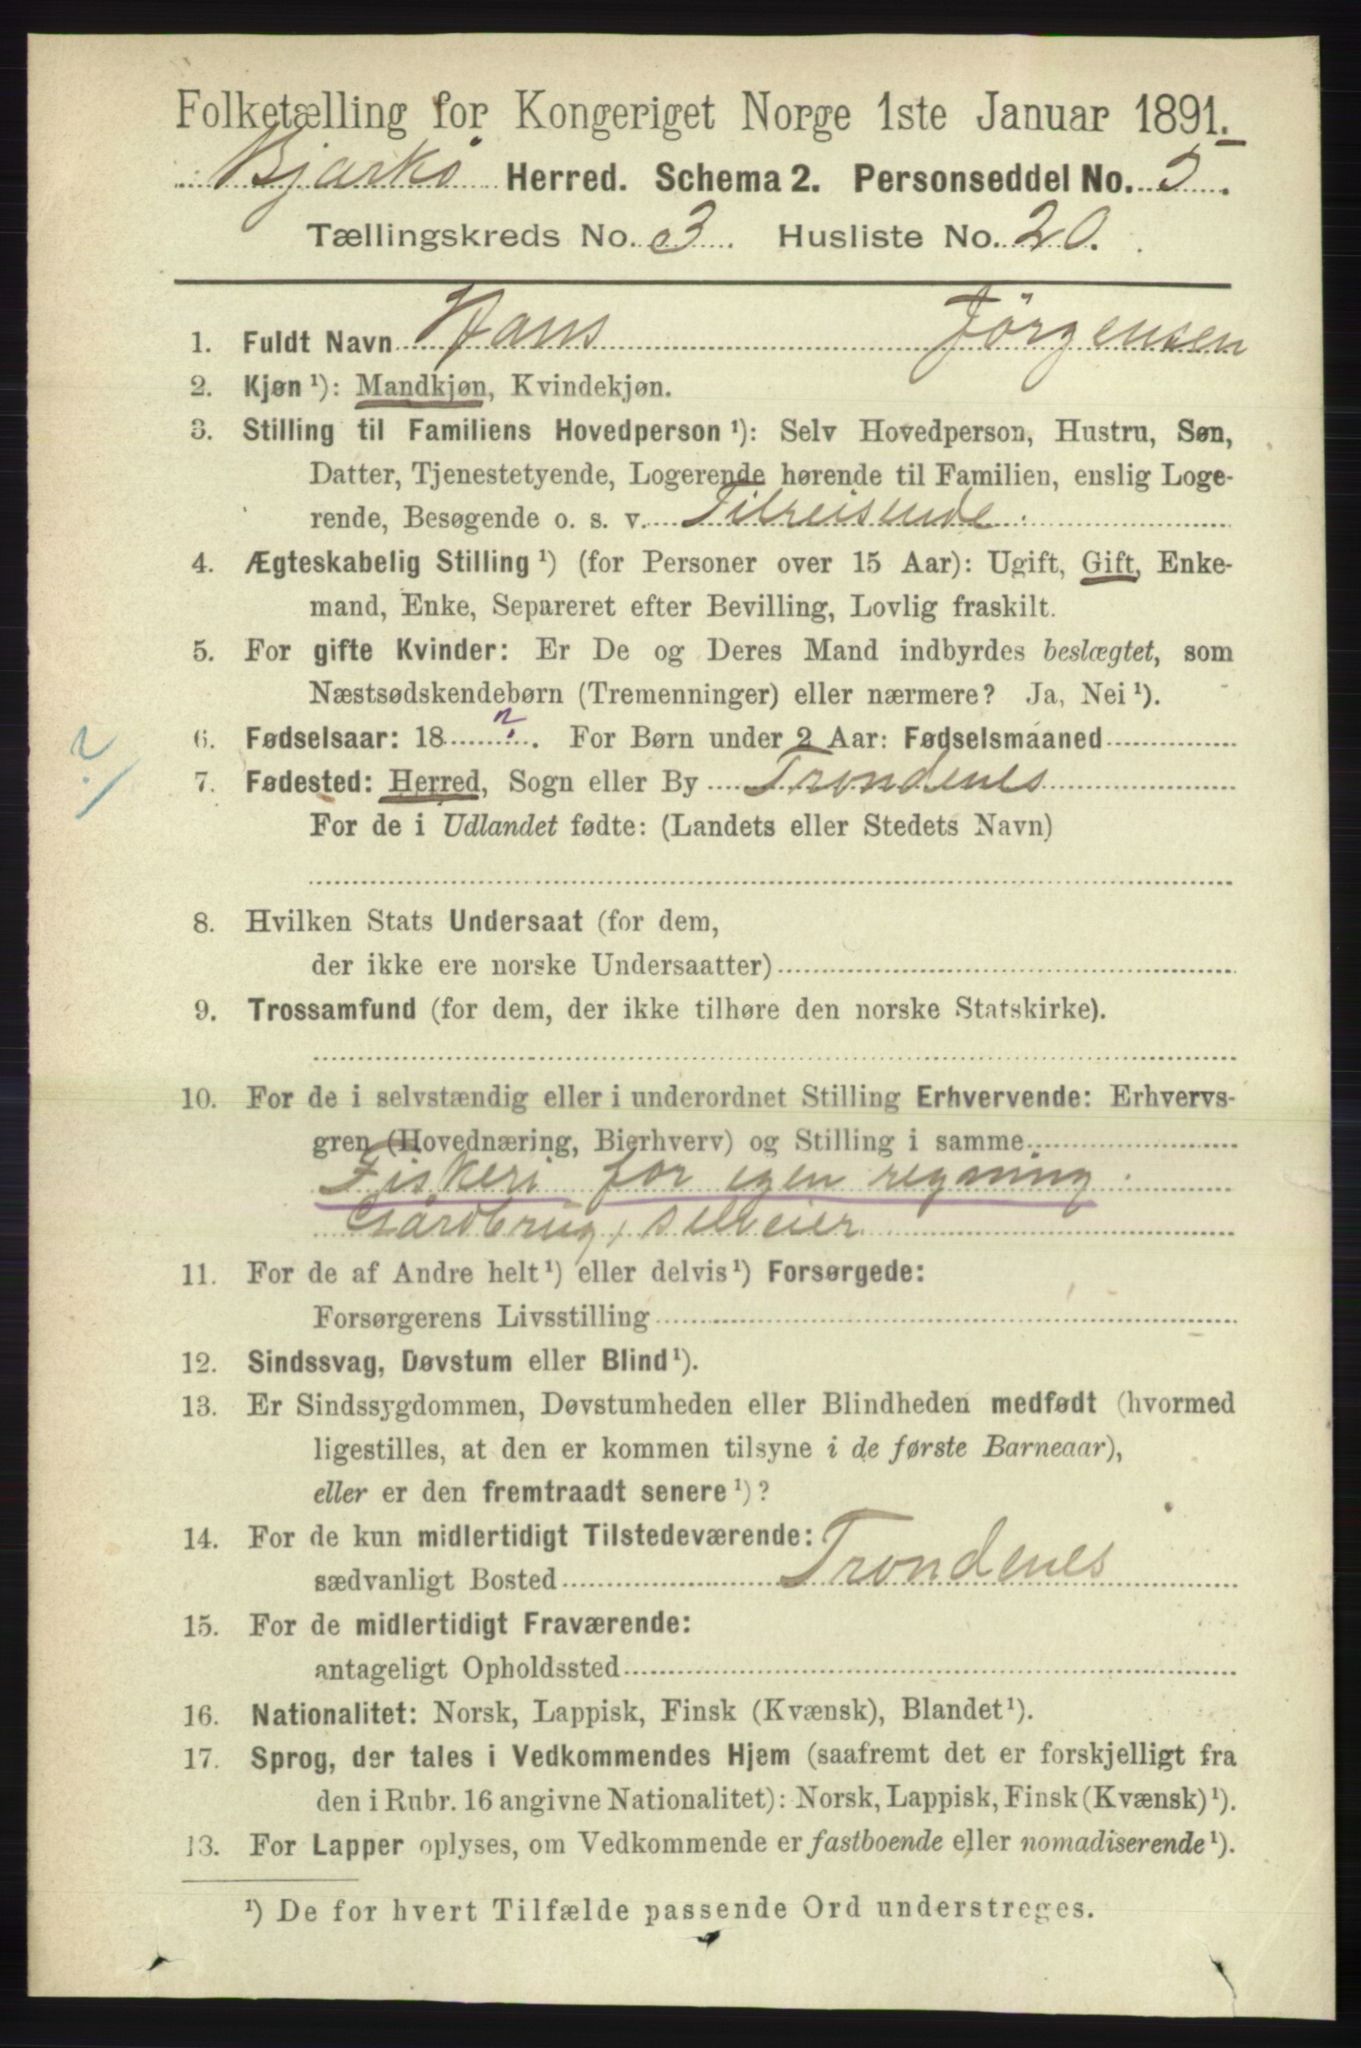 Folketælling for Kongeriget Norge 1ste Januar 1891.
Bjarkö Herred. Schema 2. Personseddel No. 5.
Tællingskreds No. 3. Husliste No. 20.
1. Fuldt Navn Hans Jörgensen
2. Kjøn ¹): Mandkjøn, Kvindekjøn.
3. Stilling til Familiens Hovedperson ¹): Selv Hovedperson, Hustru, Søn,
Datter, Tjenestetyende, Logerende hørende til Familien, enslig Loge-
rende, Besøgende o. s. v. Tilreisende.
4. Ægteskabelig Stilling ¹) (for Personer over 15 Aar): Ugift, Gift, Enke-
mand, Enke, Separeret efter Bevilling, Lovlig fraskilt.
5. For gifte Kvinder: Er De og Deres Mand indbyrdes beslægtet, som
Næstsødskendebørn (Tremenninger) eller nærmere? Ja, Nei ¹).
?
6. Fødselsaar: 18 ?. For Børn under 2 Aar: Fødselsmaaned
7. Fødested: Herred, Sogn eller By Trondenes
For de i Udlandet fødte: (Landets eller Stedets Navn)
8. Hvilken Stats Undersaat (for dem,
der ikke ere norske Undersaatter)
9. Trossamfund (for dem, der ikke tilhøre den norske Statskirke).
10. For de i selvstændig eller i underordnet Stilling Erhvervende: Erhvervs-
gren (Hovednæring, Bierhverv) og Stilling i samme
Fiskeri for egen regning.
Gårdbrug, selveier
11. For de af Andre helt ¹) eller delvis ¹) Forsørgede:
Forsørgerens Livsstilling
12. Sindssvag, Døvstum eller Blind ¹).
13. Er Sindssygdommen, Døvstumheden eller Blindheden medfødt (hvormed
ligestilles, at den er kommen tilsyne i de første Barneaar),
eller er den fremtraadt senere ¹)?
14. For de kun midlertidigt Tilstedeværende:
sædvanligt Bosted Trondenes
15. For de midlertidigt Fraværende:
antageligt Opholdssted
16. Nationalitet: Norsk, Lappisk, Finsk (Kvænsk), Blandet ¹).
17. Sprog, der tales i Vedkommendes Hjem (saafremt det er forskjelligt fra
den i Rubr. 16 angivne Nationalitet): Norsk, Lappisk, Finsk (Kvænsk) ¹).
13. For Lapper oplyses, om Vedkommende er fastboende eller nomadiserende ¹).
¹) De for hvert Tilfælde passende Ord understreges.